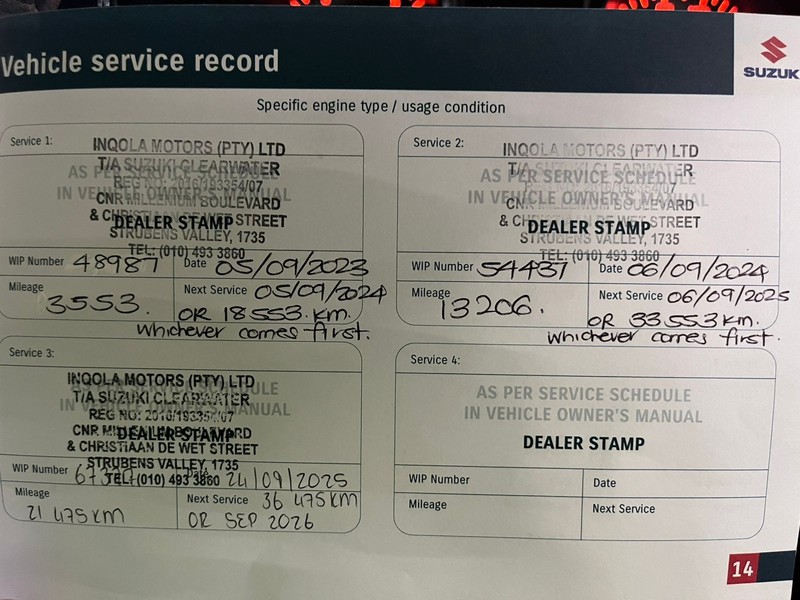 Vehicle service record
SUZUKI
Specific engine type / usage condition
Service 1:
INQOLA MOTORS (PTY) LTD
T/A SUZUKI CLEARWATER
AS PER SERVICE SCHEDULE
REG NO: 2016/193354/07
IN VEHICLE OWNER'S MANUAL
CNR MILLENIUM BOULEVARD
& CHRISTIAAN DE WET STREET
DEALER STAMP
STRUBENS VALLEY, 1735
TEL: (010) 493 3860
WIP Number 48987 Date 05/09/2023
Mileage 3553. Next Service 05/09/2024
OR 18553.km.
whichever comes first.
Service 2:
INQOLA MOTORS (PTY) LTD
T/A SUZUKI CLEARWATER
AS PER SERVICE SCHEDULE
REG NO: 2016/193354/07
IN VEHICLE OWNER'S MANUAL
CNR MILLENIUM BOULEVARD
& CHRISTIAAN DE WET STREET
DEALER STAMP
STRUBENS VALLEY, 1735
TEL: (010) 493 3860
WIP Number 54437 Date 06/09/2024
Mileage 13206. Next Service 06/09/2025
OR 33553km.
whichever comes first.
Service 3:
INQOLA MOTORS (PTY) LTD
AS PER SERVICE SCHEDULE
T/A SUZUKI CLEARWATER
IN VEHICLE OWNER'S MANUAL
REG NO: 2016/193354/07
CNR MILLENIUM BOULEVARD
DEALER STAMP
& CHRISTIAAN DE WET STREET
STRUBENS VALLEY, 1735
TEL: (010) 493 3860
WIP Number Date 24/09/2025
Mileage 21 475KM Next Service 36 475KM
OR SEP 2026
Service 4:
AS PER SERVICE SCHEDULE
IN VEHICLE OWNER'S MANUAL
DEALER STAMP
WIP Number Date
Mileage Next Service
14